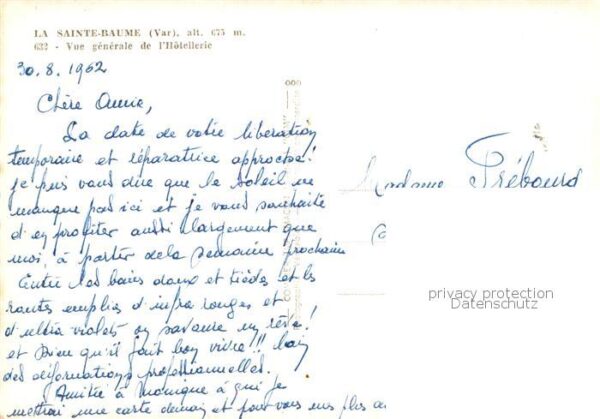 LA SAINTE-BAUME (Var), alt. 675 m.
632 - Vue générale de l'Hôtellerie
30.8.1962
Chère Annie,
La date de votre libération
temporaire et réparatrice approche!
je puis vous dire que le soleil ne
manque pas ici et je vous souhaite
d'en profiter aussi largement que
moi, à partir de la semaine prochain
Entre les bains doux et tièdes et les
routes emplies d'infra rouges et
d'ultra violets on savoure un rêve!
et Dieu qu'il fait bon vivre!! loin
des déformations professionnelles.
Amitié à Monique à qui je
mettrai une carte demain et pour vous mes plus
Madame Prébours
privacy protection
Datenschutz